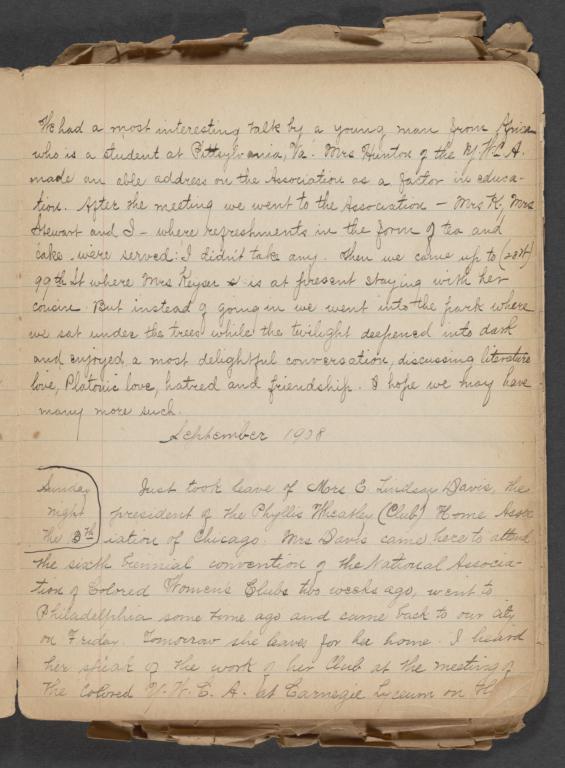 We had a most interesting talk by a young man from Africa
who is a student at Pittsylvania, Va. Mrs Hunton of the Y.W.C.A.
made an able address on the Association as a factor in educa-
tion. After the meeting we went to the Association – Mrs K, Mrs
Stewart and I – where refreshments in the form of tea and
cake were served: I didn't take any. Then we came up to
99th St where Mrs Keyser is at present staying with her
cousin. But instead of going in we went into the park where
we sat under the trees while the twilight deepened into dark
and enjoyed a most delightful conversation, discussing literature
love, Platonic love, hatred and friendship. I hope we may have
many more such.
September 1908
Sunday
night
the
Just took leave of Mrs E. Lindsay Davis, the
president of the Phyllis Wheatley (Club) Home Assoc
iation of Chicago. Mrs Davis came here to attend
the sixth biennial convention of the National Associa-
tion of Colored Women's Clubs two weeks ago, went to
Philadelphia some time ago and came back to our city
on Friday. Tomorrow she leaves for her home. I heard
her speak of the work of her Club at the meeting of
the Colored Y.W.C.A. at Carnegie Lyceum on